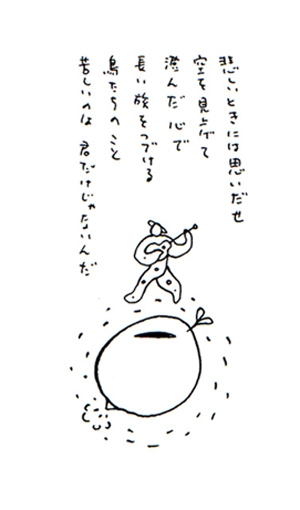 悲しいときには思いだせ
空を見上げて
澄んだ心で
長い旅をつづける
鳥たちのこと
苦しいのは 君だけじゃないんだ